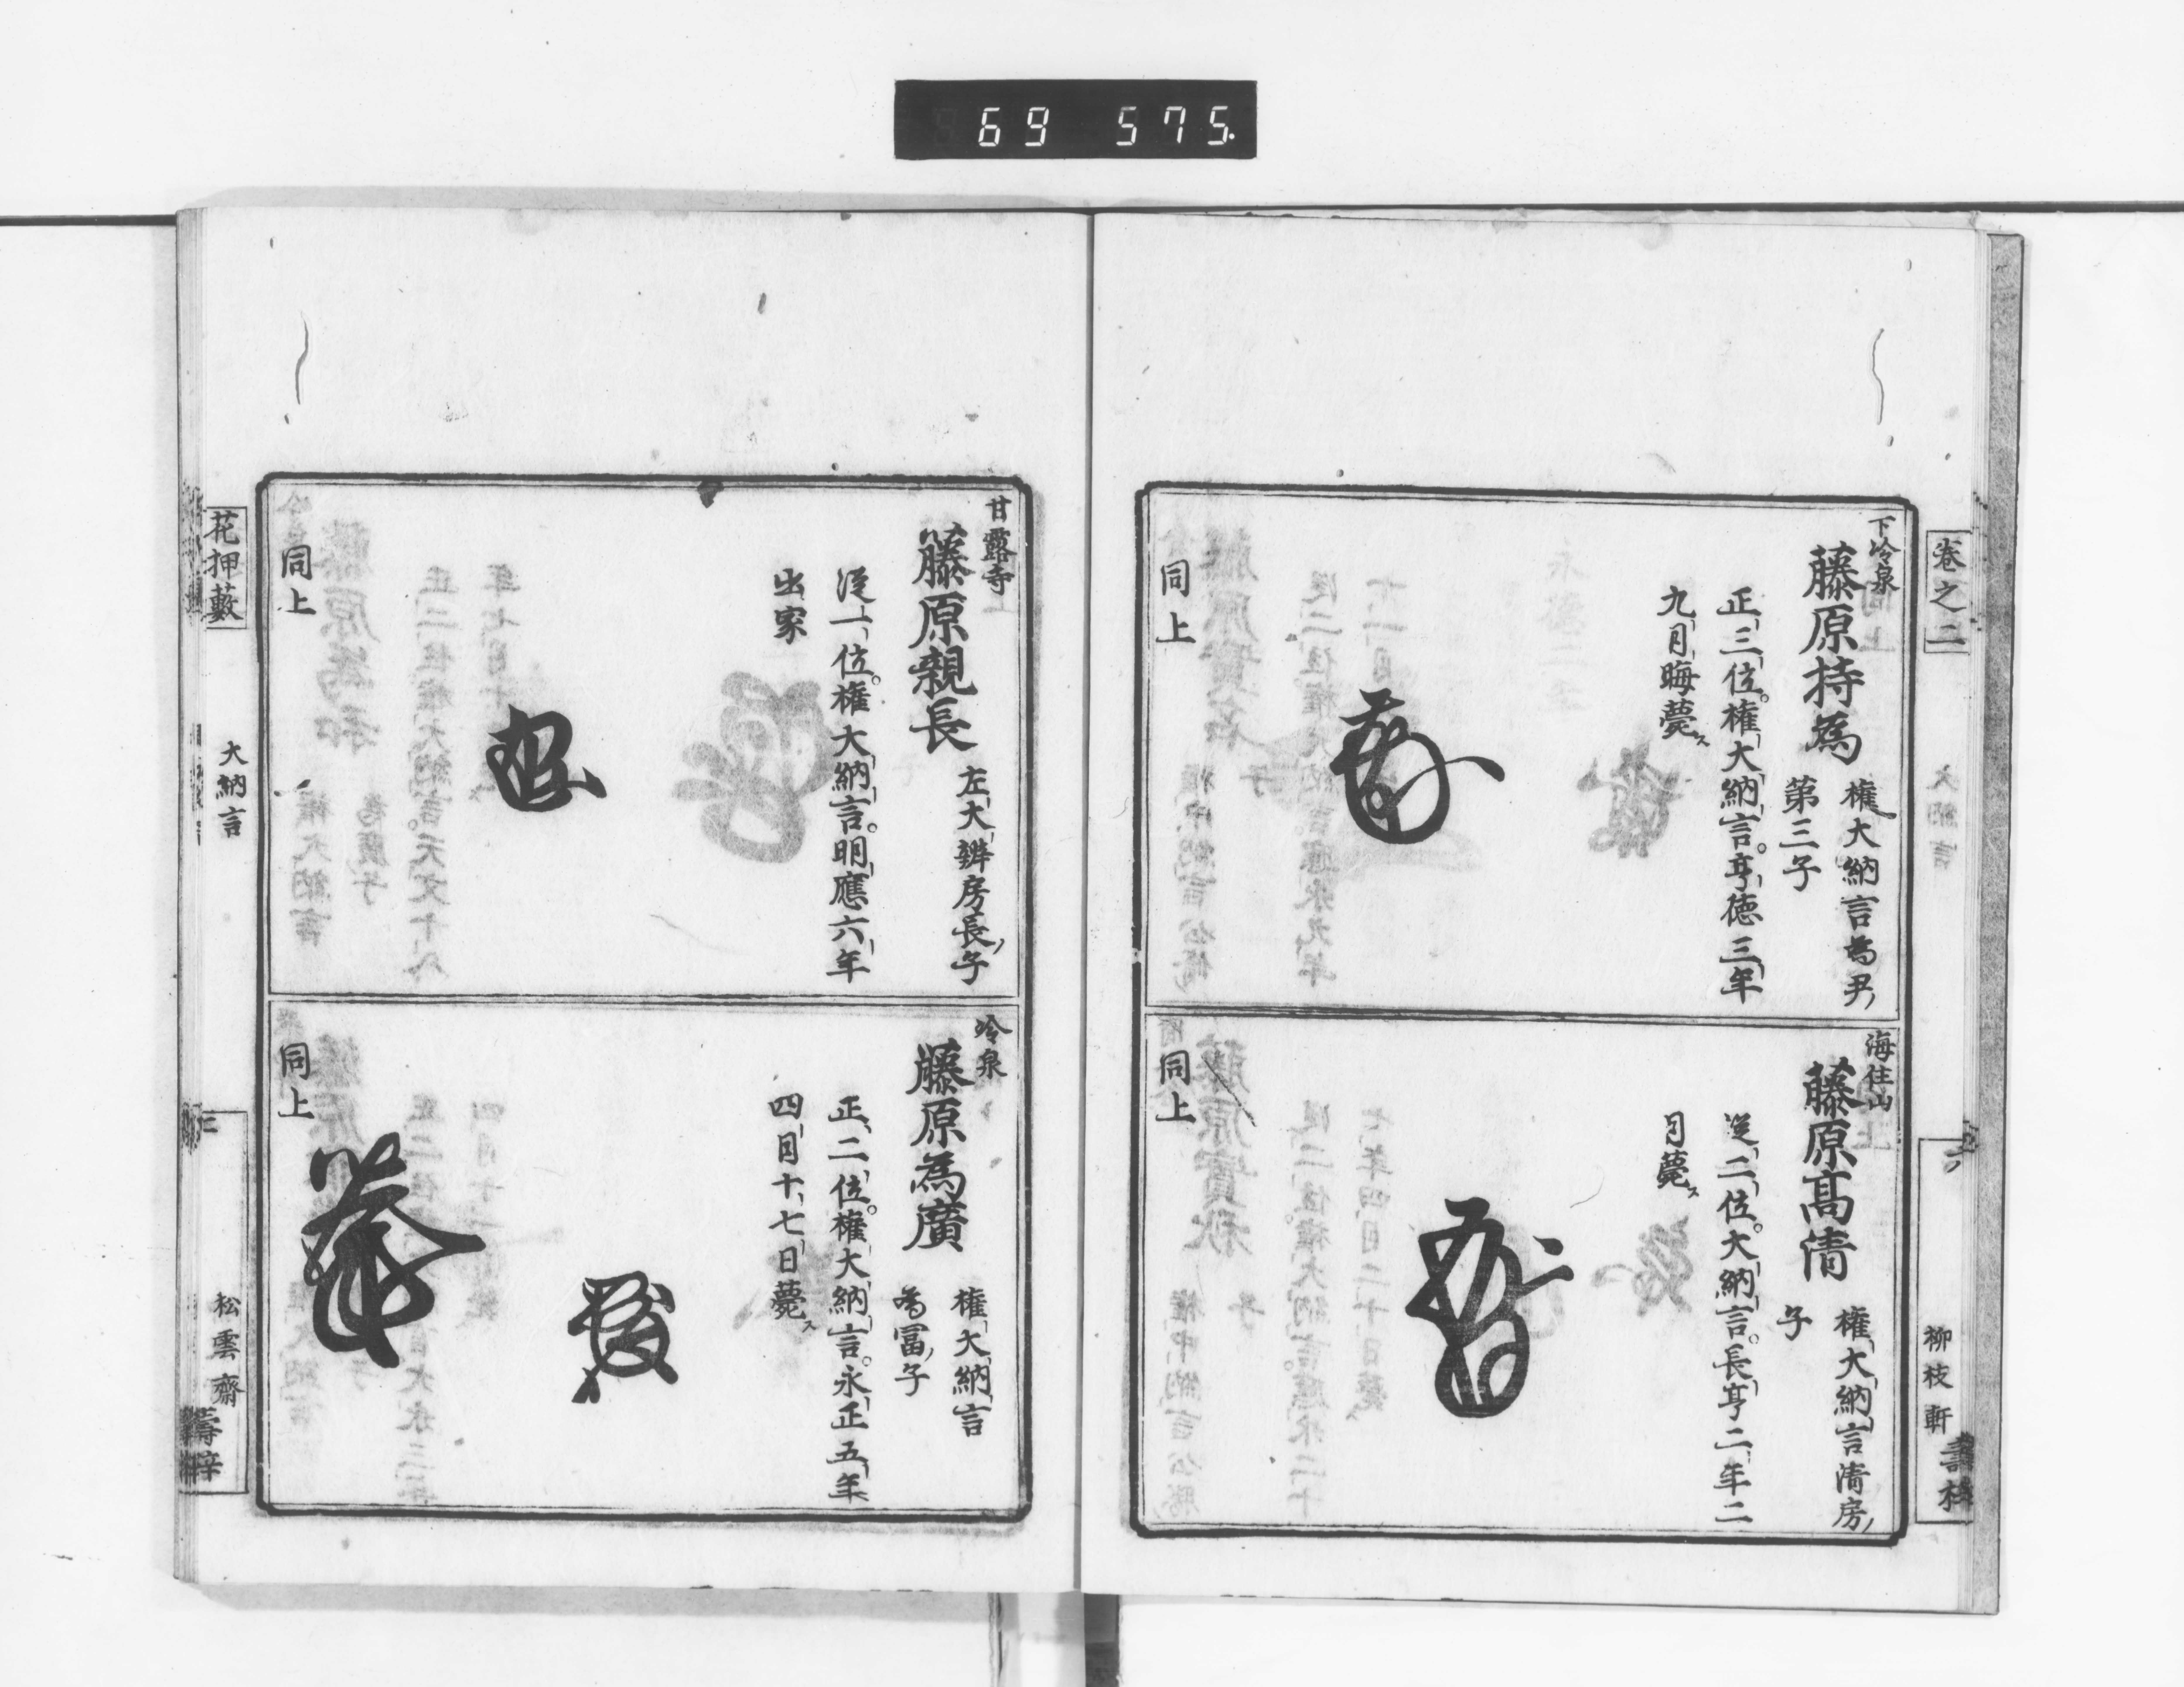 69 575.
巻之二
柳枝軒
下冷泉
藤原持為
権大納言為尹子
第三子
正三位。権大納言。亨徳三年
九月晦薨ス
同上
海住山
藤原高清
権大納言清房
子
従二位。大納言。長亨二年二
月薨ス
同上
甘露寺
藤原親長
左大辨房長子
従一位。権大納言。明應六年
出家
同上
冷泉
藤原為廣
権大納言
為冨子
正二位。権大納言。永正五年
四月十七日薨ス
同上
花押藪
大納言
松雲齋